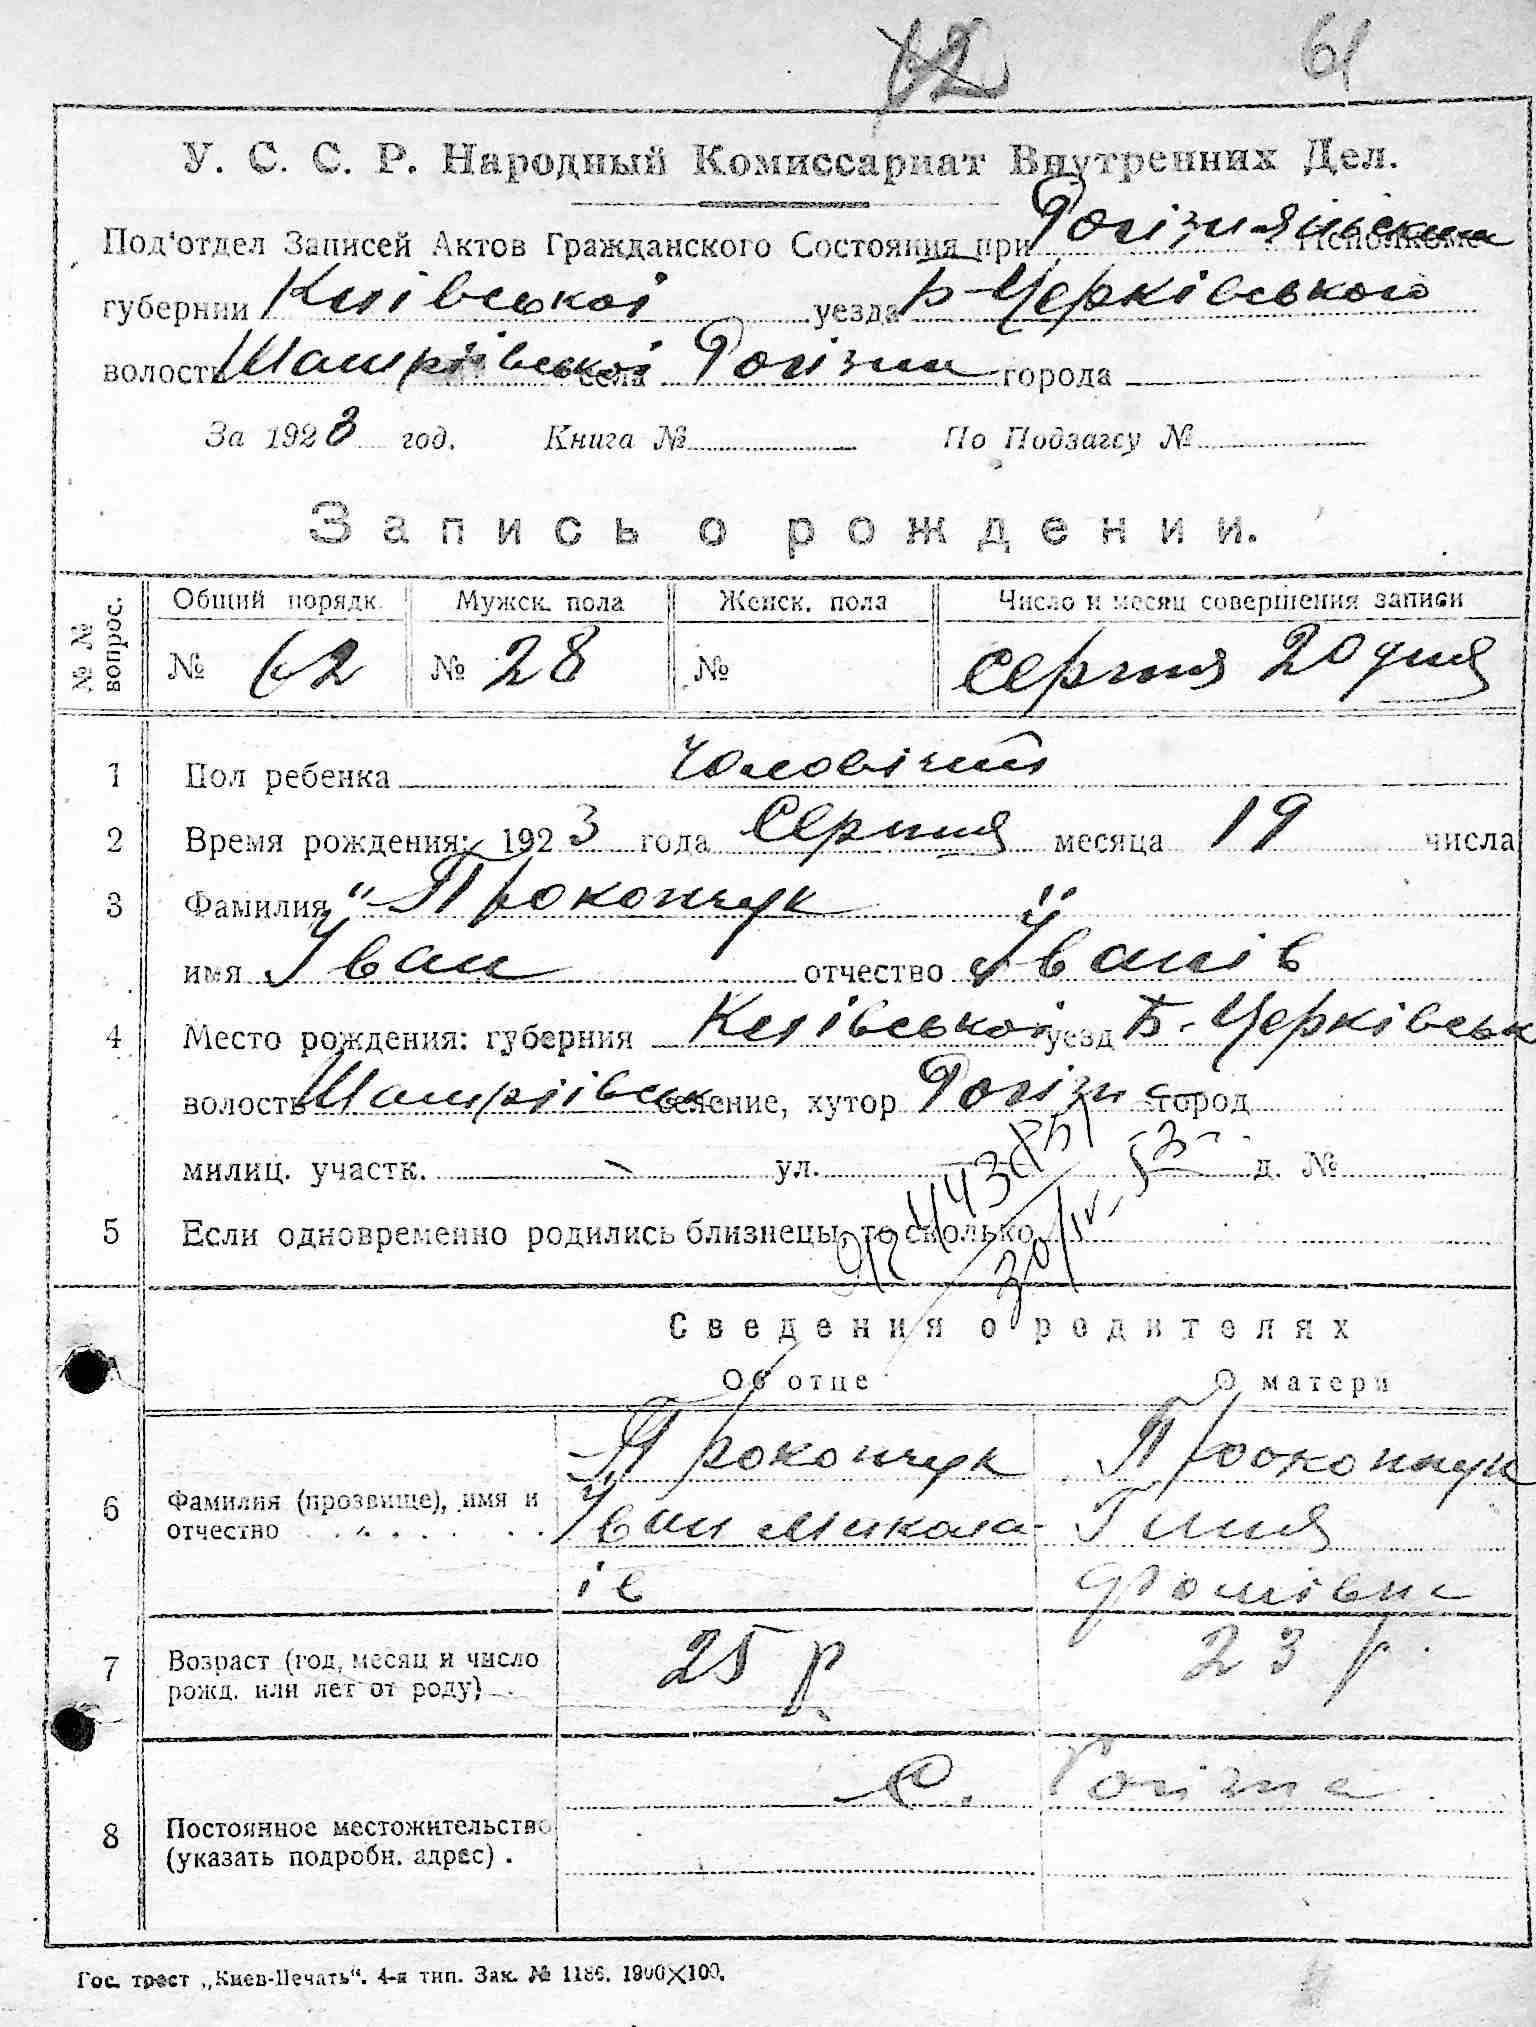 62 61
У. С. С. Р. Народный Комиссариат Внутренних Дел.
Под'отдел Записей Актов Гражданского Состояния при Рогізнянським Исполкоме
губернии Київської уезда Б-Церківського
волости села Рогізни города
За 1923 год. Книга № По Подзагсу №
Запись о рождении.
№№ вопрос. Общий порядк. Мужск. пола Женск. пола Число и месяц совершения записи
№ 62 № 28 № Серпня 20 дня
1 Пол ребенка Чоловічий
2 Время рождения: 1923 года Серпня месяца 19 числа
3 Фамилия Прокопчук
имя Іван отчество Іванів
4 Место рождения: губерния Київської уезд Б. Церківськ
волость селение, хутор Рогізна город
милиц. участк. ул. д. №
5 Если одновременно родились близнецы, то сколько
30/IV-53
Сведения о родителях
Об отце О матери
Прокопчук Прокопчук
6 Фамилия (прозвище), имя и Іван Микола- Ганя
отчество їв Фомівна
7 Возраст (год, месяц и число 25 р 23 р.
рожд. или лет от роду)
с. Рогізна
8 Постоянное местожительство
(указать подробн. адрес) .
Гос. трест „Киев-Печать“. 4-я тип. Зак. № 1186. 1900×100.